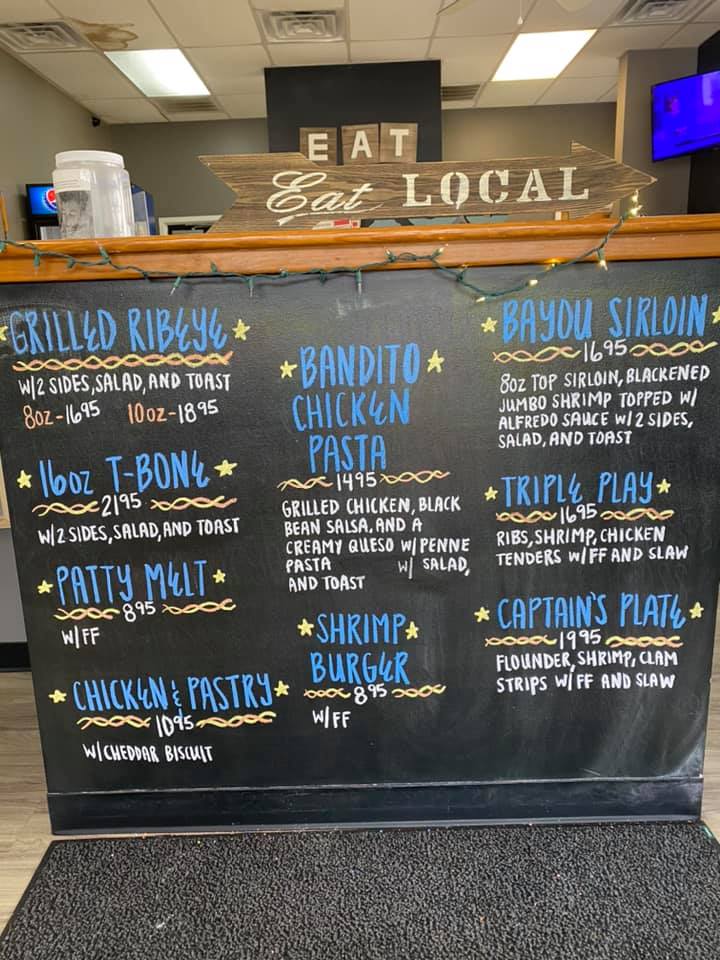 EAT
Eat LOCAL
GRILLED RIBEYE
W/2 SIDES, SALAD, AND TOAST
8OZ-1695 10OZ-1895
16OZ T-BONE
2195
W/2 SIDES, SALAD, AND TOAST
PATTY MELT
895
W/FF
CHICKEN & PASTRY
1095
W/CHEDDAR BISCUIT
BANDITO
CHICKEN
PASTA
1495
GRILLED CHICKEN, BLACK
BEAN SALSA, AND A
CREAMY QUESO W/PENNE
PASTA W/ SALAD,
AND TOAST
SHRIMP
BURGER
895
W/FF
BAYOU SIRLOIN
1695
8OZ TOP SIRLOIN, BLACKENED
JUMBO SHRIMP TOPPED W/
ALFREDO SAUCE W/2 SIDES,
SALAD, AND TOAST
TRIPLE PLAY
1695
RIBS, SHRIMP, CHICKEN
TENDERS W/FF AND SLAW
CAPTAIN'S PLATE
1995
FLOUNDER, SHRIMP, CLAM
STRIPS W/FF AND SLAW